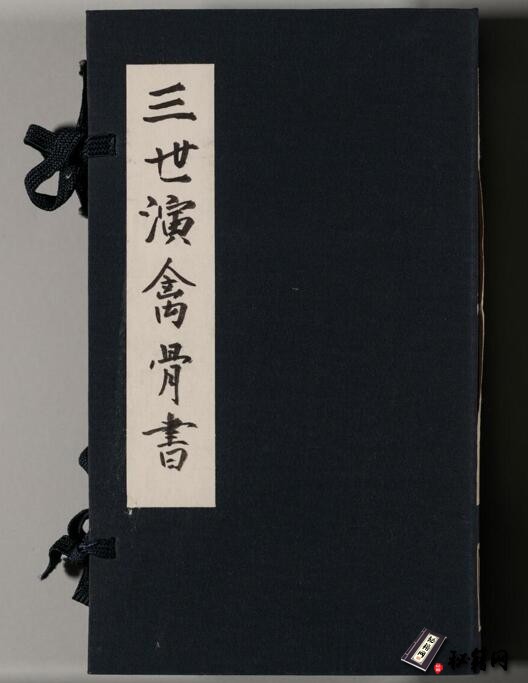 三世演禽骨書
秘籍网